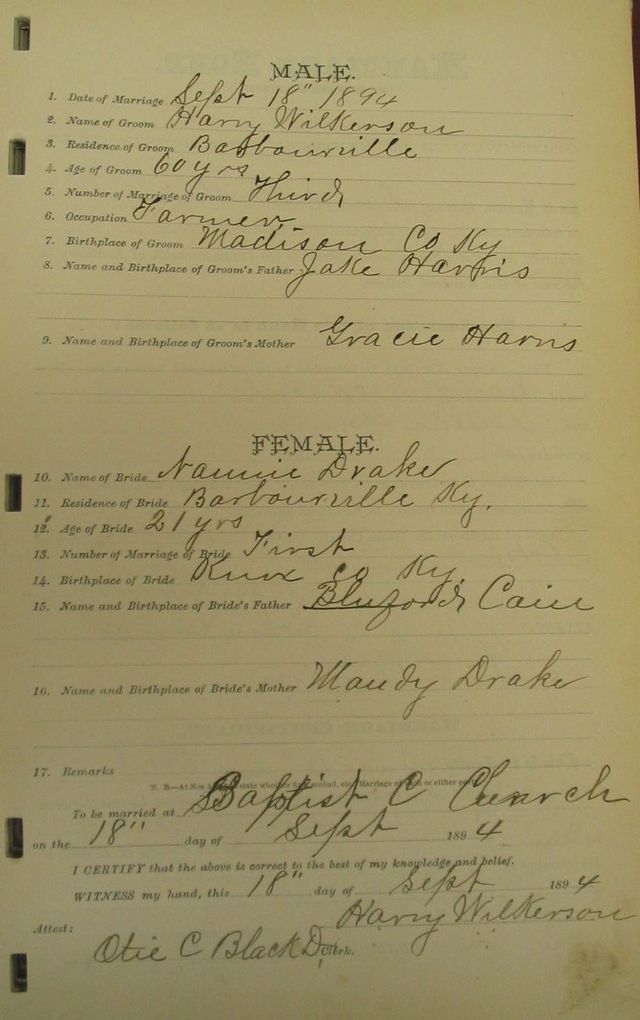 MALE.
1. Date of Marriage Sept 18" 1894
2. Name of Groom Harry Wilkerson
3. Residence of Groom Barbourville
4. Age of Groom 60 yrs
5. Number of Marriage of Groom Third
6. Occupation Farmer
7. Birthplace of Groom Madison Co Ky
8. Name and Birthplace of Groom's Father Jake Harris
9. Name and Birthplace of Groom's Mother Gracie Harris
FEMALE.
10. Name of Bride Nannie Drake
11. Residence of Bride Barbourville Ky.
12. Age of Bride 21 yrs
13. Number of Marriage of Bride First
14. Birthplace of Bride Knox Co Ky
15. Name and Birthplace of Bride's Father Bluford Cain
16. Name and Birthplace of Bride's Mother Mandy Drake
17. Remarks
N. B.—At Nos. state whether second, etc., Marriage of or either
To be married at Baptist C Church
on the 18" day of Sept 1894
I CERTIFY that the above is correct to the best of my knowledge and belief.
WITNESS my hand, this 18" day of Sept 1894
Harry Wilkerson
Attest:
Otie C Black D, Clerk.